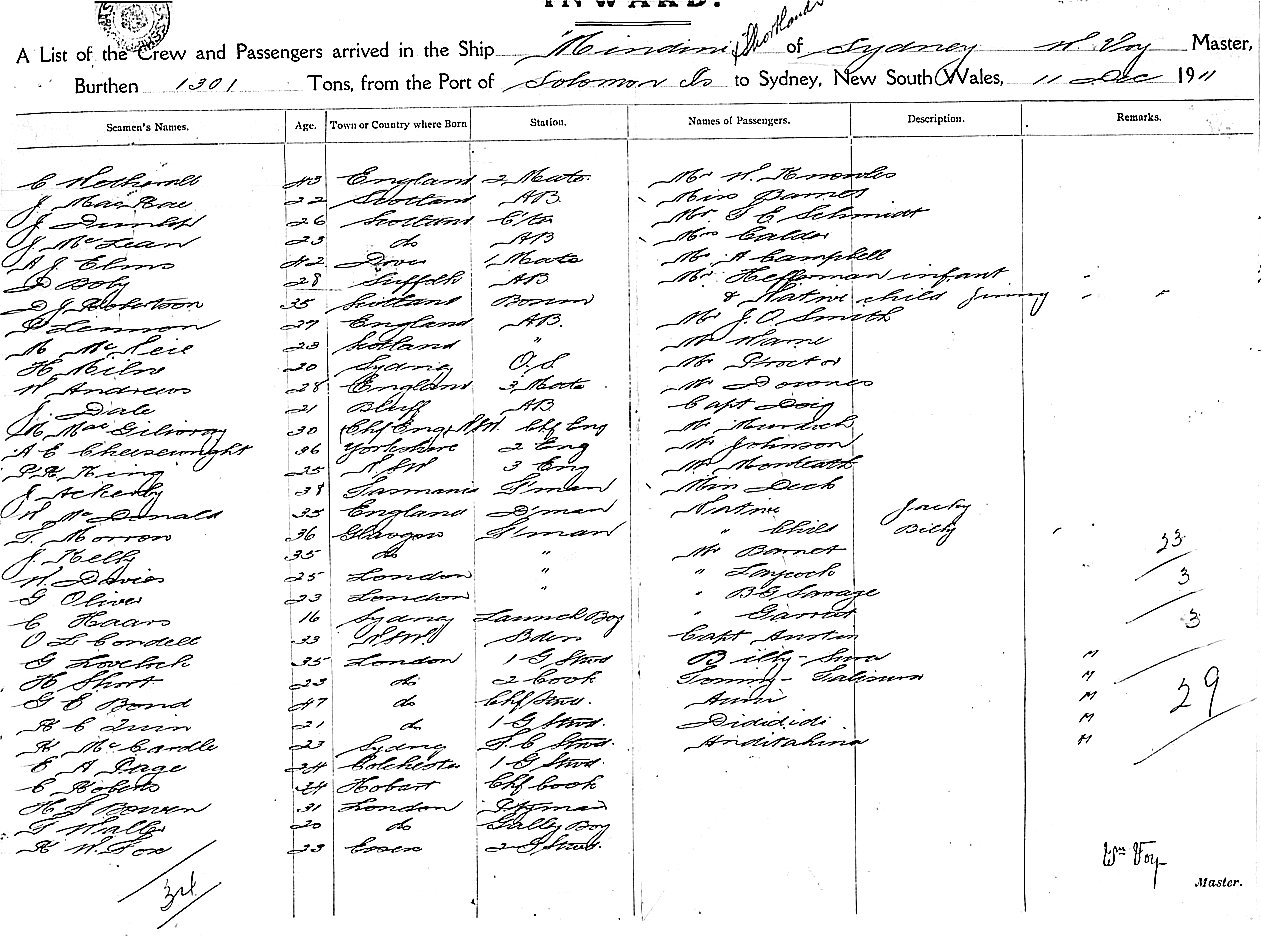 INWARD.
A List of the Crew and Passengers arrived in the Ship Mindini & Shortlands of Sydney W Voy Master,
Burthen 1301 Tons, from the Port of Solomon Is to Sydney, New South Wales, 11 Dec 1911
Seamen's Names. Age. Town or Country where Born Station. Names of Passengers. Description. Remarks.
C 43 England 2 Mate Mr W. Knowles
J MacRae 22 Scotland AB. Miss Barnes
J Dunlop 26 Scotland Mr. S E Schmidt
J McLean 23 do AB Mrs Calder
A J Elms 42 Dover 1 Mate Mr A Campbell
D Boby 28 Suffolk AB Mr Heffernan infant "
D J Robertson 35 Scotland Bosun & Native child Jimmy " "
P Lennon 27 England AB. Mr J. O. Smith
M McNeil 23 Scotland " Mr Wame
H Milne 20 Sydney O.S. Mr Proctor
W Andrews 28 England 3 Mate Mr Downes
J. Dale 21 Bluff AB Capt Doig
30 Chf Eng N.S.W. Chf Eng Mr Murdoch
A E Cheesewright 36 Yorkshire 2 Eng Mr Johnson
P. H. King 25 N S W 3 Eng Mr Monteath
J Ackerly 38 Tasmania F'man Miss Deck
W McDonald 35 England D'man Native Jacky
T. Morron 36 Glasgow F'man " Child Billy "
J. Kelly 35 do " Mr Barnet 23
W. Davies 25 London " " Laycock 3
G Oliver 23 London " " B G Savage
C Haars 16 Sydney Launch Boy " Garrett 3
O L Condell 33 N.S.W. Capt Austin
G Lovelock 35 London 1 G Stwd Billy - M
H Short 23 do 2 Cook Tommy - M
G E Bond 47 do Chf Stwd. M 29
R C Quin 21 do 1 G Stwd. Didididi M
R. McCardle 23 Sydney S. C Stwd. M
E A Page 24 Colchester 1 G Stwd.
C Roberts 34 Hobart Chf Cook
H S Bowen 31 London
T Waller 20 do Galley Boy
R W. Fox 23 Essex 2 G Stwd.
34
Wm Voy
Master.